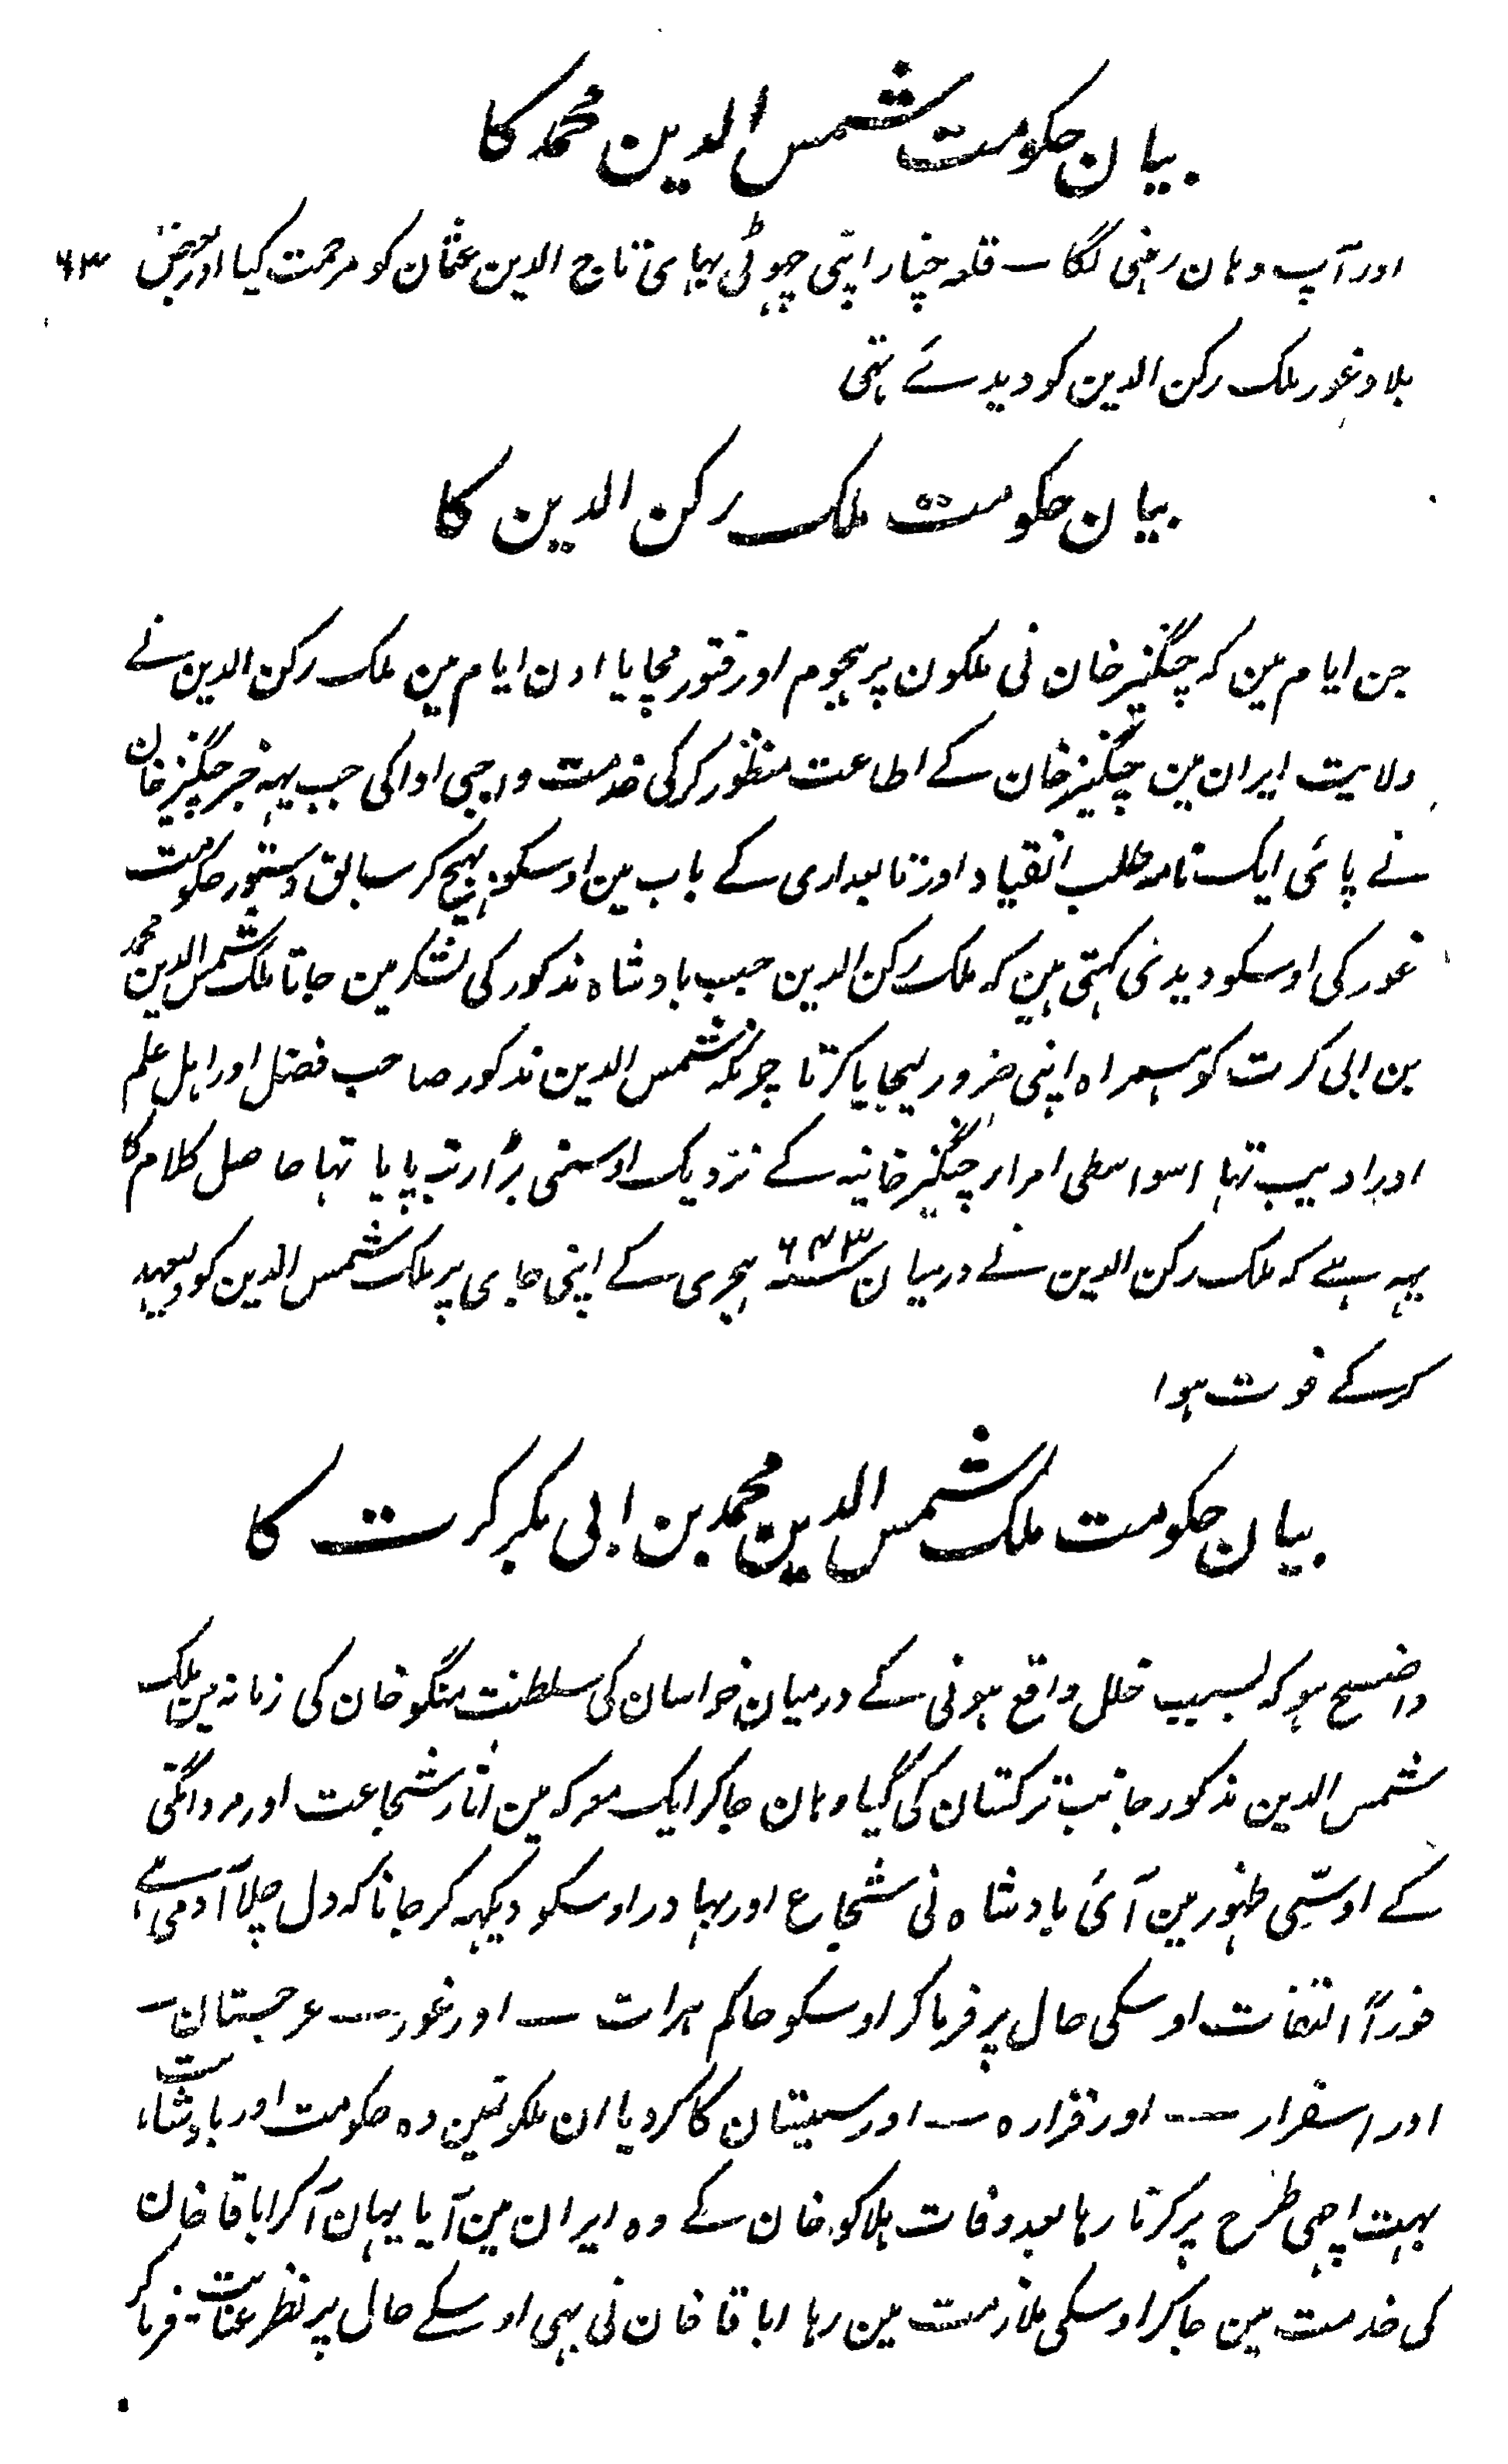 بیان حکومت شمس الدین محمد کا
۶۳
اور آپ وہان رہنی لگا ۔ قلعہ خنیار اپنی چہوٹی بہاےی تاج الدین عثمان کو مرحمت کیا اور بعض
بلاد غور ملک رکن الدین کو دیدئے تہی
بیان حکومت ملک رکن الدین کا
جن ایام مین کہ چنگیز خان نی ملکون پر ہجوم اور فتور مچایا اون ایام مین ملک رکن الدین نے
ولایت ایران مین چنگیز خان کے اطاعت منظور کر کی خدمت واجبی ادا کی جب یہہ خبر چنگیز خان
نے پائی ایک نامہ طلب انقیاد اور تابعداری کے باب مین اوسکو بہیج کر سابق دستور حکومت
غور کی اوسکو دیدی کہتی ہین کہ ملک رکن الدین جب بادشاہ مذکور کی لشکر مین جاتا ملک شمس الدین محمد
بن ابی کرت کو ہمراہ اپنی ضرور لیجایا کرتا چونکہ شمس الدین مذکور صاحب فضل اور اہل علم
اور ادیب تہا اسواسطی امراء چنگیز خانیہ کے نزدیک اوسنی بڑا رتبہ پایا تہا حاصل کلام کا
یہہ ہے کہ ملک رکن الدین نے درمیان ۶۴۳ سنہ ہجری کے اپنی جاےی پر ملک شمس الدین کو ولیعہد
کر کے فوت ہوا
بیان حکومت ملک شمس الدین محمد بن ابی بکر کرت کا
واضح ہو کہ بسبب خلل واقع ہونی کے درمیان خراسان کی سلطنت منگو خان کی زمانہ مین ملک
شمس الدین مذکور جانب ترکستان کی گیا وہان جا کر ایک معرکہ مین آثار شجاعت اور مردانگی
کے اوسّی ظہور مین آئی بادشاہ نی شجاع اور بہادر اوسکو دیکہہ کر جانا کہ دل چلا آدمی ہے
فوراً التفات اوسکی حال پر فرما کر اوسکو حاکم ہرات ۔ اور غور ۔ غرجستان ۔
اور اسفرار ۔ اور فراہ ۔ اور سیستان کا کر دیا ان ملکونمین وہ حکومت اور بادشاہت
بہت اچہی طرح پر کرتا رہا بعد وفات ہلاکو خان کے وہ ایران مین آیا یہان آ کر اباقا خان
کی خدمت مین جا کر اوسکی ملازمت مین رہا اباقا خان نی بہی اوسکے حال پر نظر عنایت فرما کر